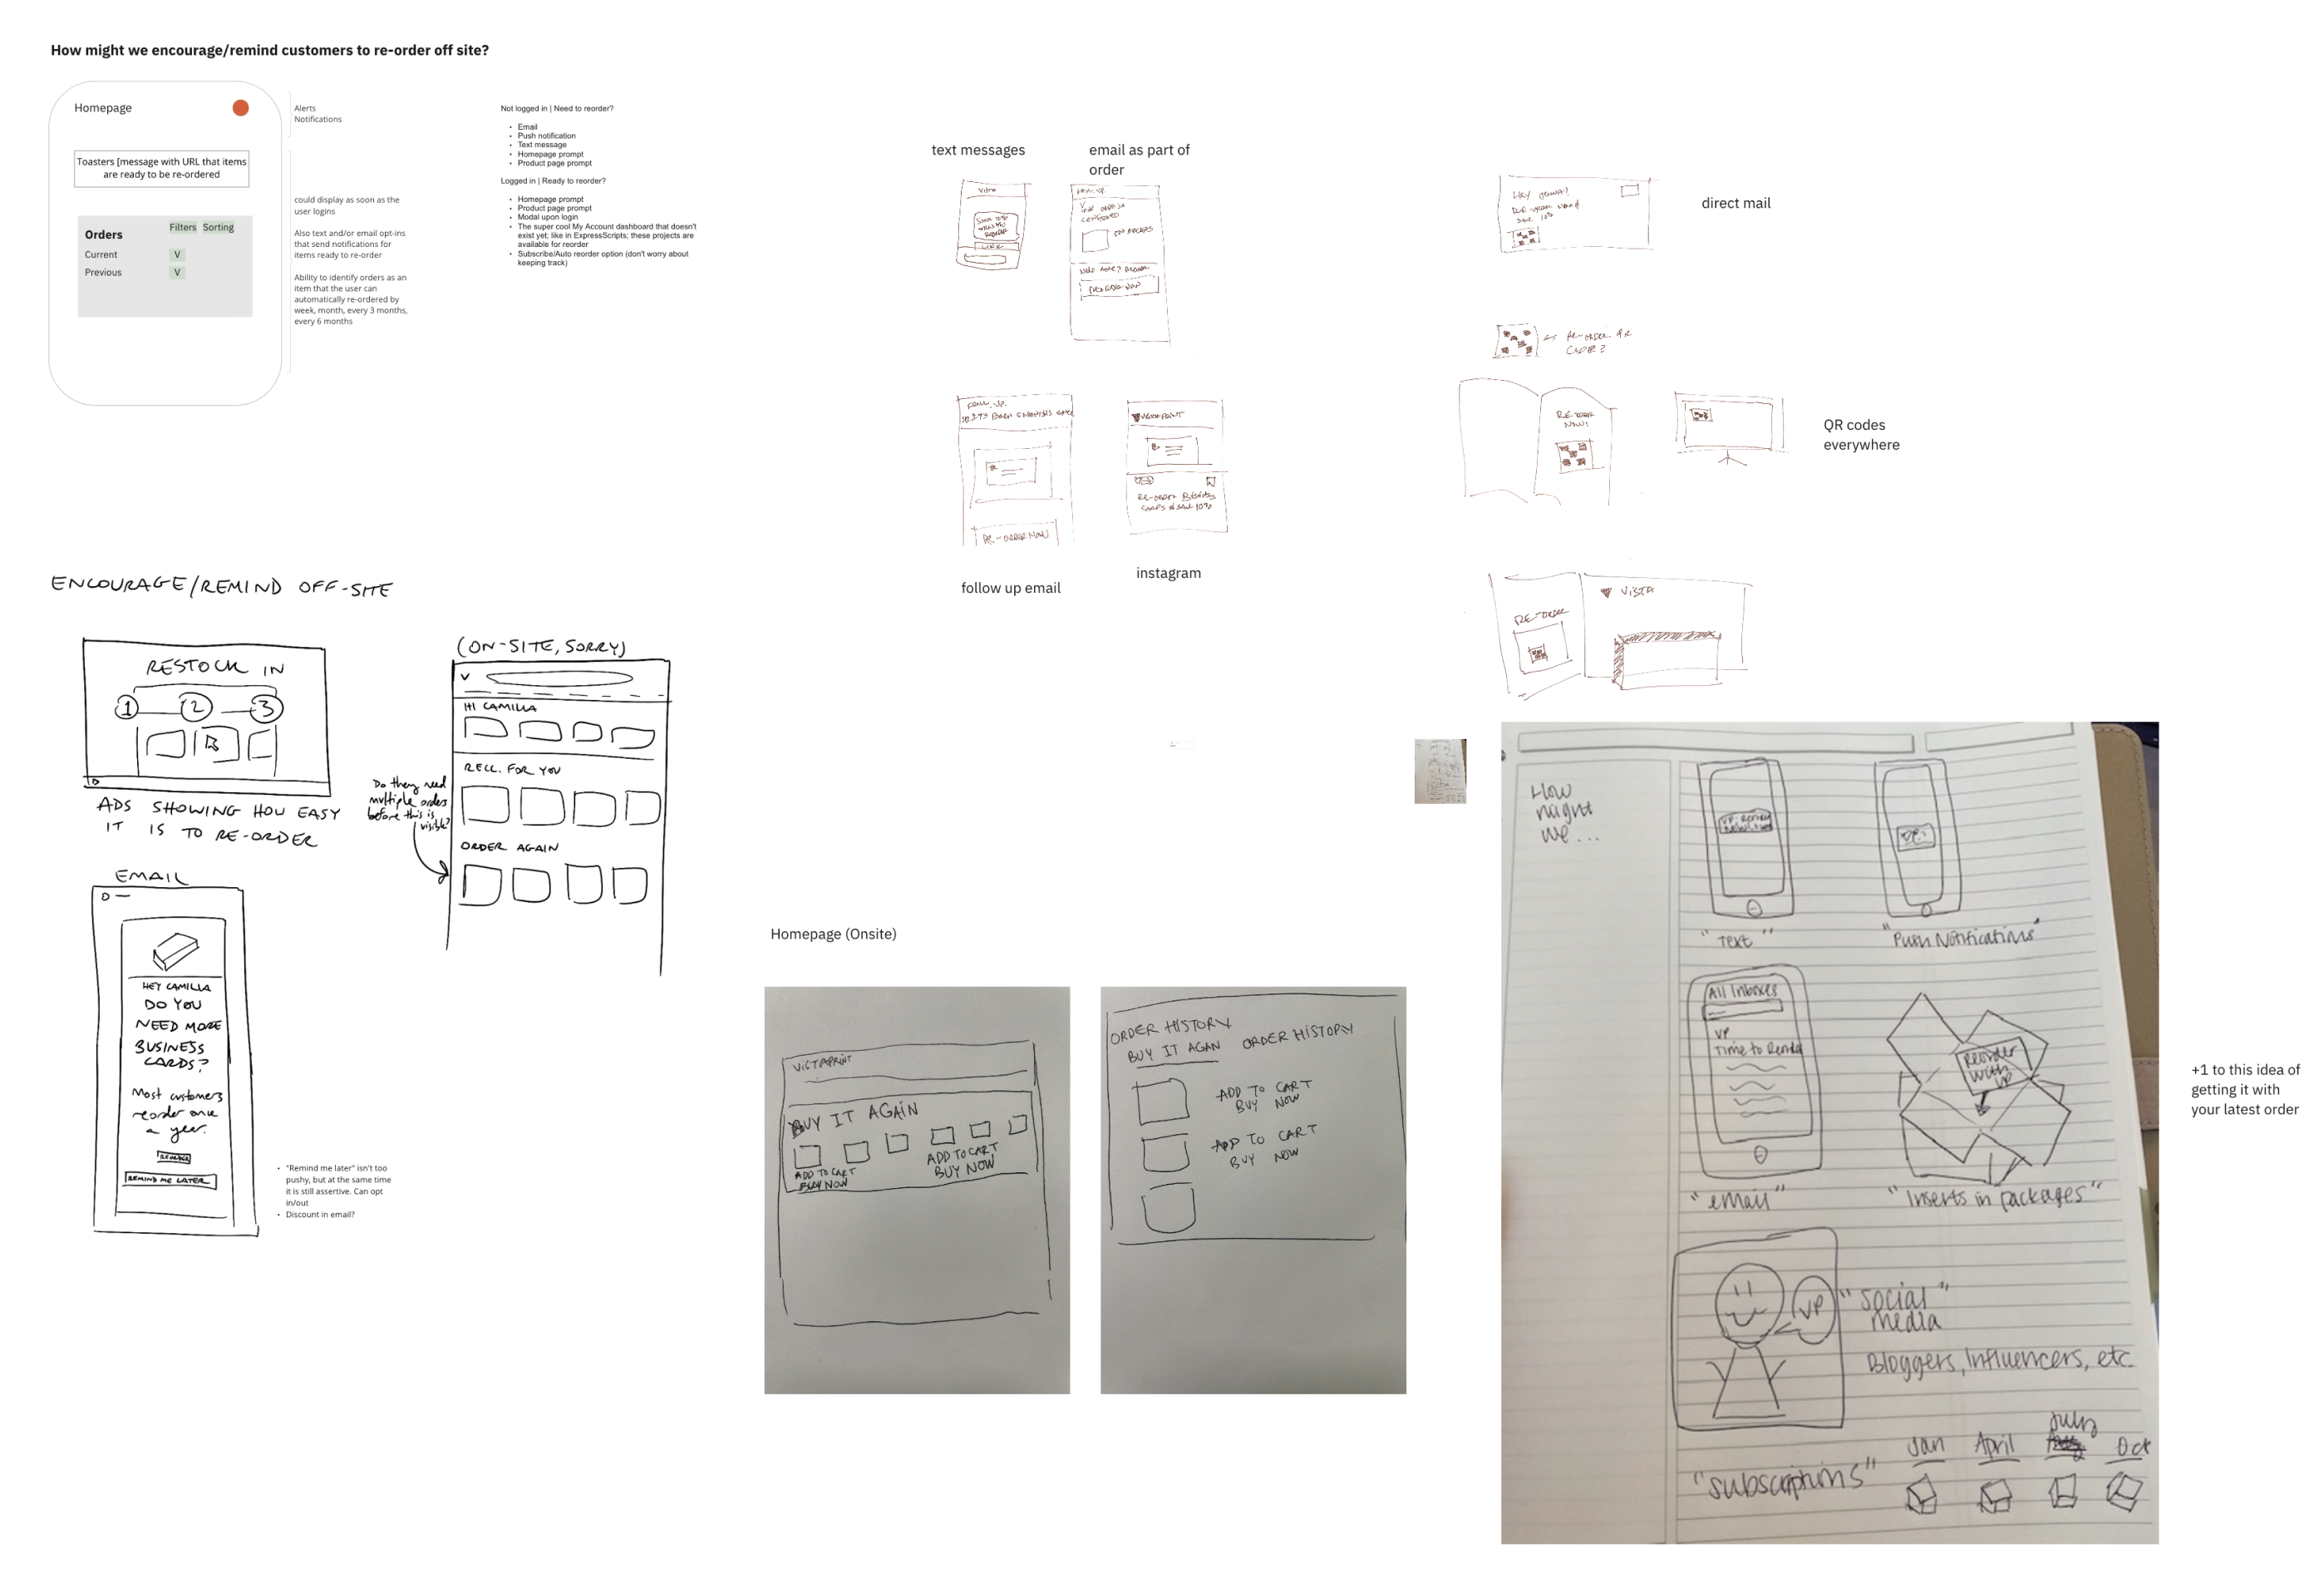 How might we encourage/remind customers to re-order off site?
Homepage
Toasters [message with URL that items
are ready to be re-ordered
Orders
Filters Sorting
Current V
Previous V
Alerts
Notifications
could display as soon as the
user logins
Also text and/or email opt-ins
that send notifications for
items ready to re-order
Ability to identify orders as an
item that the user can
automatically re-ordered by
week, month, every 3 months,
every 6 months
Not logged in | Need to reorder?
• Email
• Push notification
• Text message
• Homepage prompt
• Product page prompt
Logged in | Ready to reorder?
• Homepage prompt
• Product page prompt
• Modal upon login
• The super cool My Account dashboard that doesn't
exist yet; like in ExpressScripts; these projects are
available for reorder
• Subscribe/Auto reorder option (don't worry about
keeping track)
text messages
email as part of
order
LINK
follow up email
RE-ORDER NOW
instagram
RE-ORDER BUSINESS
CARDS & SAVE 10%
direct mail
HEY JENNA!
RE-ORDER NOW &
SAVE 10%
RE-ORDER QR
CODE?
RE-ORDER
NOW!
QR codes
everywhere
RE-ORDER
VISTA
ENCOURAGE/REMIND OFF-SITE
RESTOCK IN
1 2 3
ADS SHOWING HOW EASY
IT IS TO RE-ORDER
(ON-SITE, SORRY)
V
HI CAMILLA
RECC. FOR YOU
ORDER AGAIN
Do they need
multiple orders
before this is
visible?
EMAIL
HEY CAMILLA
DO YOU
NEED MORE
BUSINESS
CARDS?
Most customers
reorder once
a year.
REORDER
REMIND ME LATER
• "Remind me later" isn't too
pushy, but at the same time
it is still assertive. Can opt
in/out
• Discount in email?
Homepage (Onsite)
VISTAPRINT
BUY IT AGAIN
ADD TO CART
BUY NOW
ADD TO CART
BUY NOW
ORDER HISTORY
BUY IT AGAIN ORDER HISTORY
ADD TO CART
BUY NOW
ADD TO CART
BUY NOW
How
might
we...
"Text"
VP:
"Push Notifications"
All Inboxes
VP
Time to Reorder
"email"
Reorder
with
VP
"Inserts in packages"
VP
"Social
media"
Bloggers, Influencers, etc.
"subscriptions"
Jan April July Oct
+1 to this idea of
getting it with
your latest order